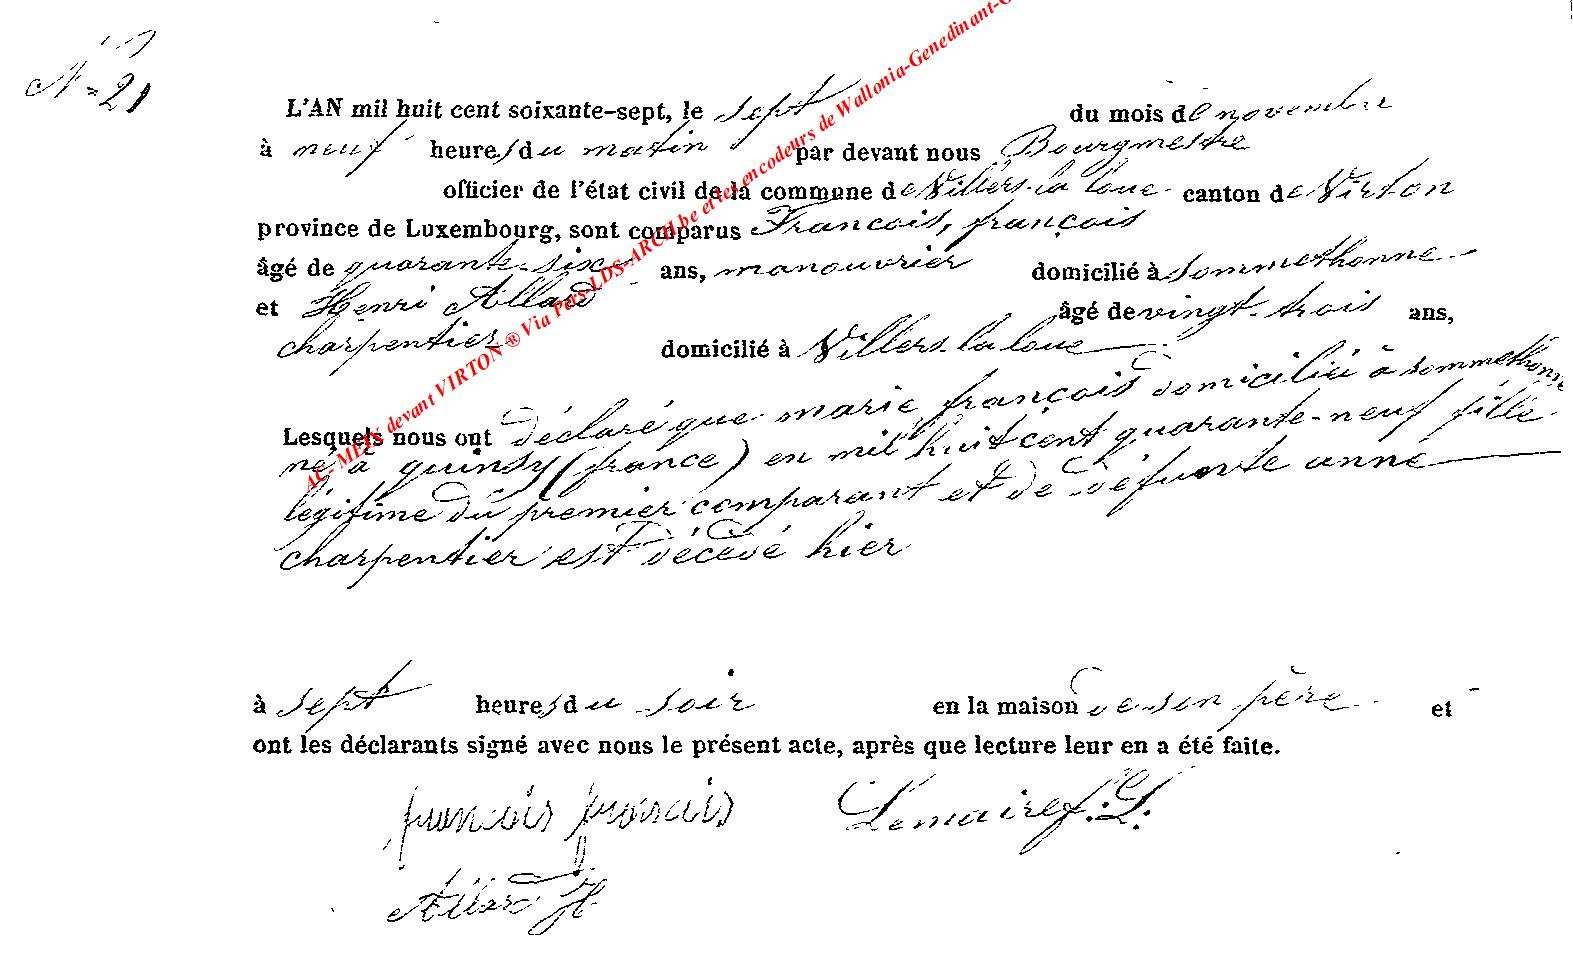 N = 21
L'AN mil huit cent soixante-sept, le sept du mois de novembre
à neuf heures du matin par devant nous Bourgmestre
officier de l'état civil de la commune de Villers-la loue canton de Virton
province de Luxembourg, sont comparus Francois, françois
âgé de quarante-six ans, manouvrier domicilié à Sommethonne
et Henri Allard âgé de vingt-trois ans,
charpentier domicilié à Villers-la loue
Lesquels nous ont déclaré que marie françois domiciliée à sommethonne
né à quinsy (france) en mil huit cent quarante-neuf fille
légitime du premier comparant et de defunte anne
charpentier est décédé hier
à sept heures du soir en la maison de son père et
ont les déclarants signé avec nous le présent acte, après que lecture leur en a été faite.
francois francois Lemaire f. L.
Allard H
AC-METX devant VIRTON ® Via Pers-LDS-ARCH.be et les encodeurs de Wallonia-Genedinant-G